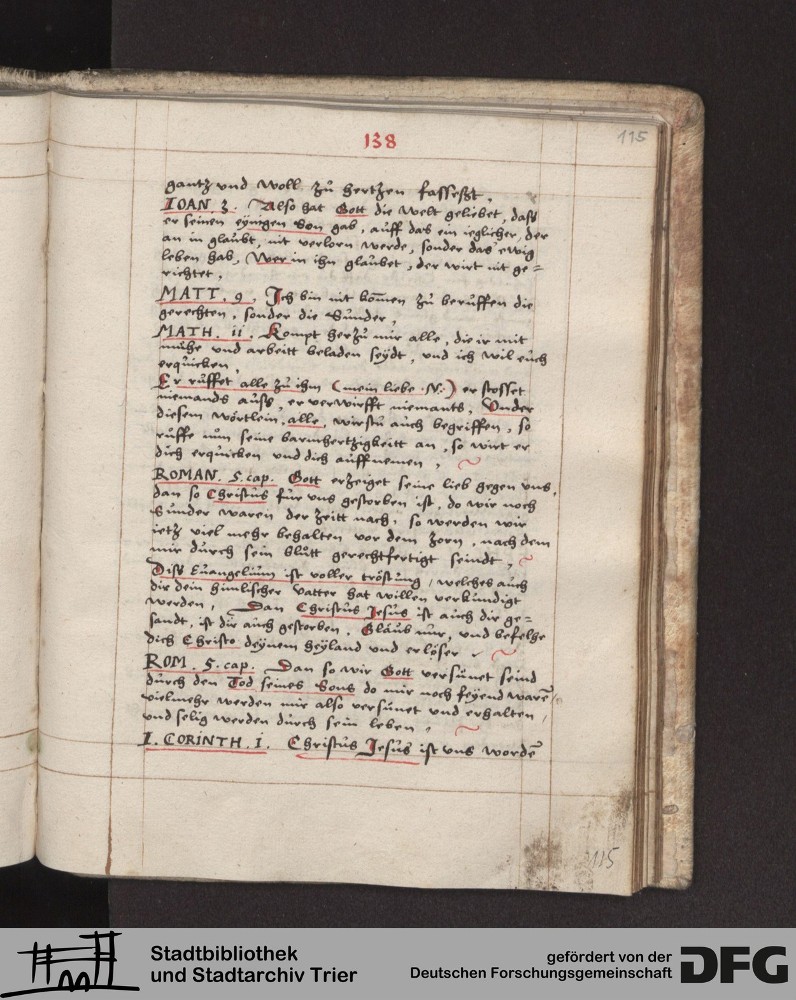 138
115
gantz vnd woll zů hertzen fassest.
IOAN. 3. Also hat Gott die welt geliebet, dass
er seinen eynigen Son gab, auff das ein ieglicher, der
an in glaubt, nit verlorn werde, sonder das ewig
leben hab, Wer in ihn glaubet, der wirt nit ge=
richtet.
MATT. 9. Ich bin nit kom̄en zů beruffen die
gerechten, sonder die Sunder,
MATH. ii. Kompt herzů mir alle, die ir mit
mühe vnd arbeitt beladen seÿdt, vnd ich wil euch
erquicken.
Er růffet alle zů ihm (mein liebe .N.) er stosset
niemands auss, er verwirfft niemants, Vnder
diesem wörtlein, alle, wirstu auch begriffen, so
růffe nun seine barmhertzigkeitt an, so wirt er
dich erquicken vnd dich auffnemen,
ROMAN. 5. cap. Gott erzeiget seine lieb gegen vns,
dan so Christůs für vns gestorben ist, do wir noch
Sunder waren der Zeitt nach, so werden wir
ietz viel mehr behalten vor dem zorn, nach dem
mir důrch sein blůtt gerechtfertigt seindt,
Diss Euangelium ist voller tröstung, welches auch
dir dein himlischer Vatter hat willen verkundigt
werden, Dan Christůs Jesůs ist auch dir ge=
sandt, ist dir auch gestorben. Glaůb nur, vnd befelhe
dich Christo deÿnem heÿland vnd erlöser.
ROM. 5. cap. Dan so wir Gott versunet seind
důrch den Tod seines Sons do mir noch feÿend warē,
vielmehr werden mir also versunet vnd erhalten,
vnd selig werden důrch sein leben,
I. CORINTH. I. Christůs Jesůs ist vns wordē
115
Stadtbibliothek
und Stadtarchiv Trier
gefördert von der
Deutschen Forschungsgemeinschaft
DFG